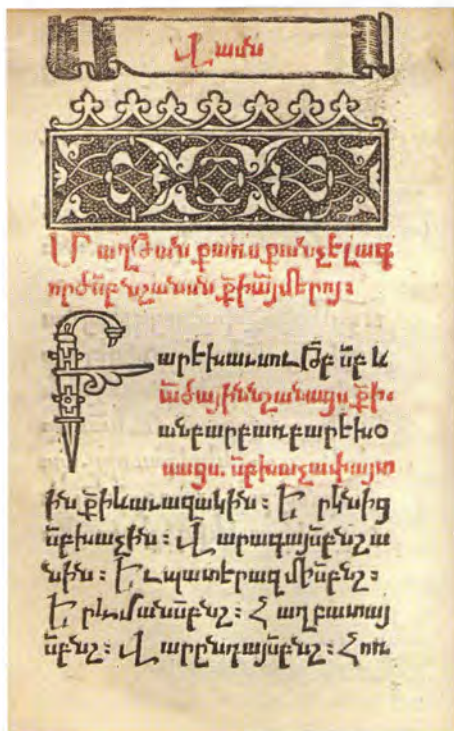 Վասն
ործ ս̃բ նշանան ք̃ի այմերոյ։
Բարեխաւսութ̃բ ս̃բ և
ա̃ծային նշանացս ք̃ի.
անբարբառ բարեխօ
սացս. ս̃բ խաչափայտ
ին ք̃ի և աւազակին։ Երկնից
ս̃բ խաչին։ Վարագայ ս̃բ նշա
նին։ Եւ պատերազմի ս̃բ նշ։
Երևման ս̃բ նշ։ Հաղբատայ
ս̃բ նշ։ Վարընդայ ս̃բ նշ։ Հոռ